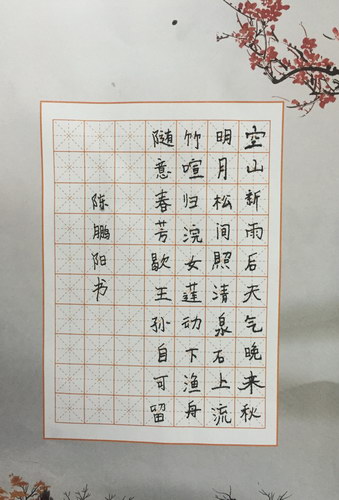 空山新雨后天气晚来秋
明月松间照清泉石上流
竹喧归浣女莲动下渔舟
随意春芳歇王孙自可留
陈鹏阳书